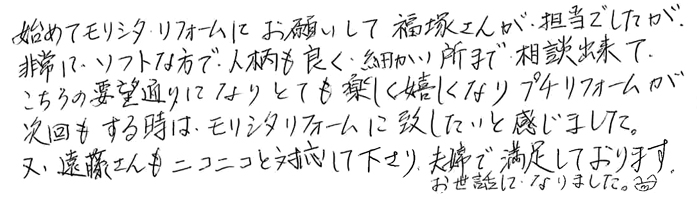 始めてモリシタ・リフォームに お願いして 福塚さんが、担当でしたが、
非常に、ソフトな方で、人柄も良く、細かい所まで、相談出来て、
こちらの要望通りになりとても楽しく嬉しくなり プチリフォームが
次回も する時は、モリシタリフォームに 致したいと感じました。
又、遠藤さんも ニコニコと対応して下さり、夫婦で 満足しております。
お世話に、なりました。